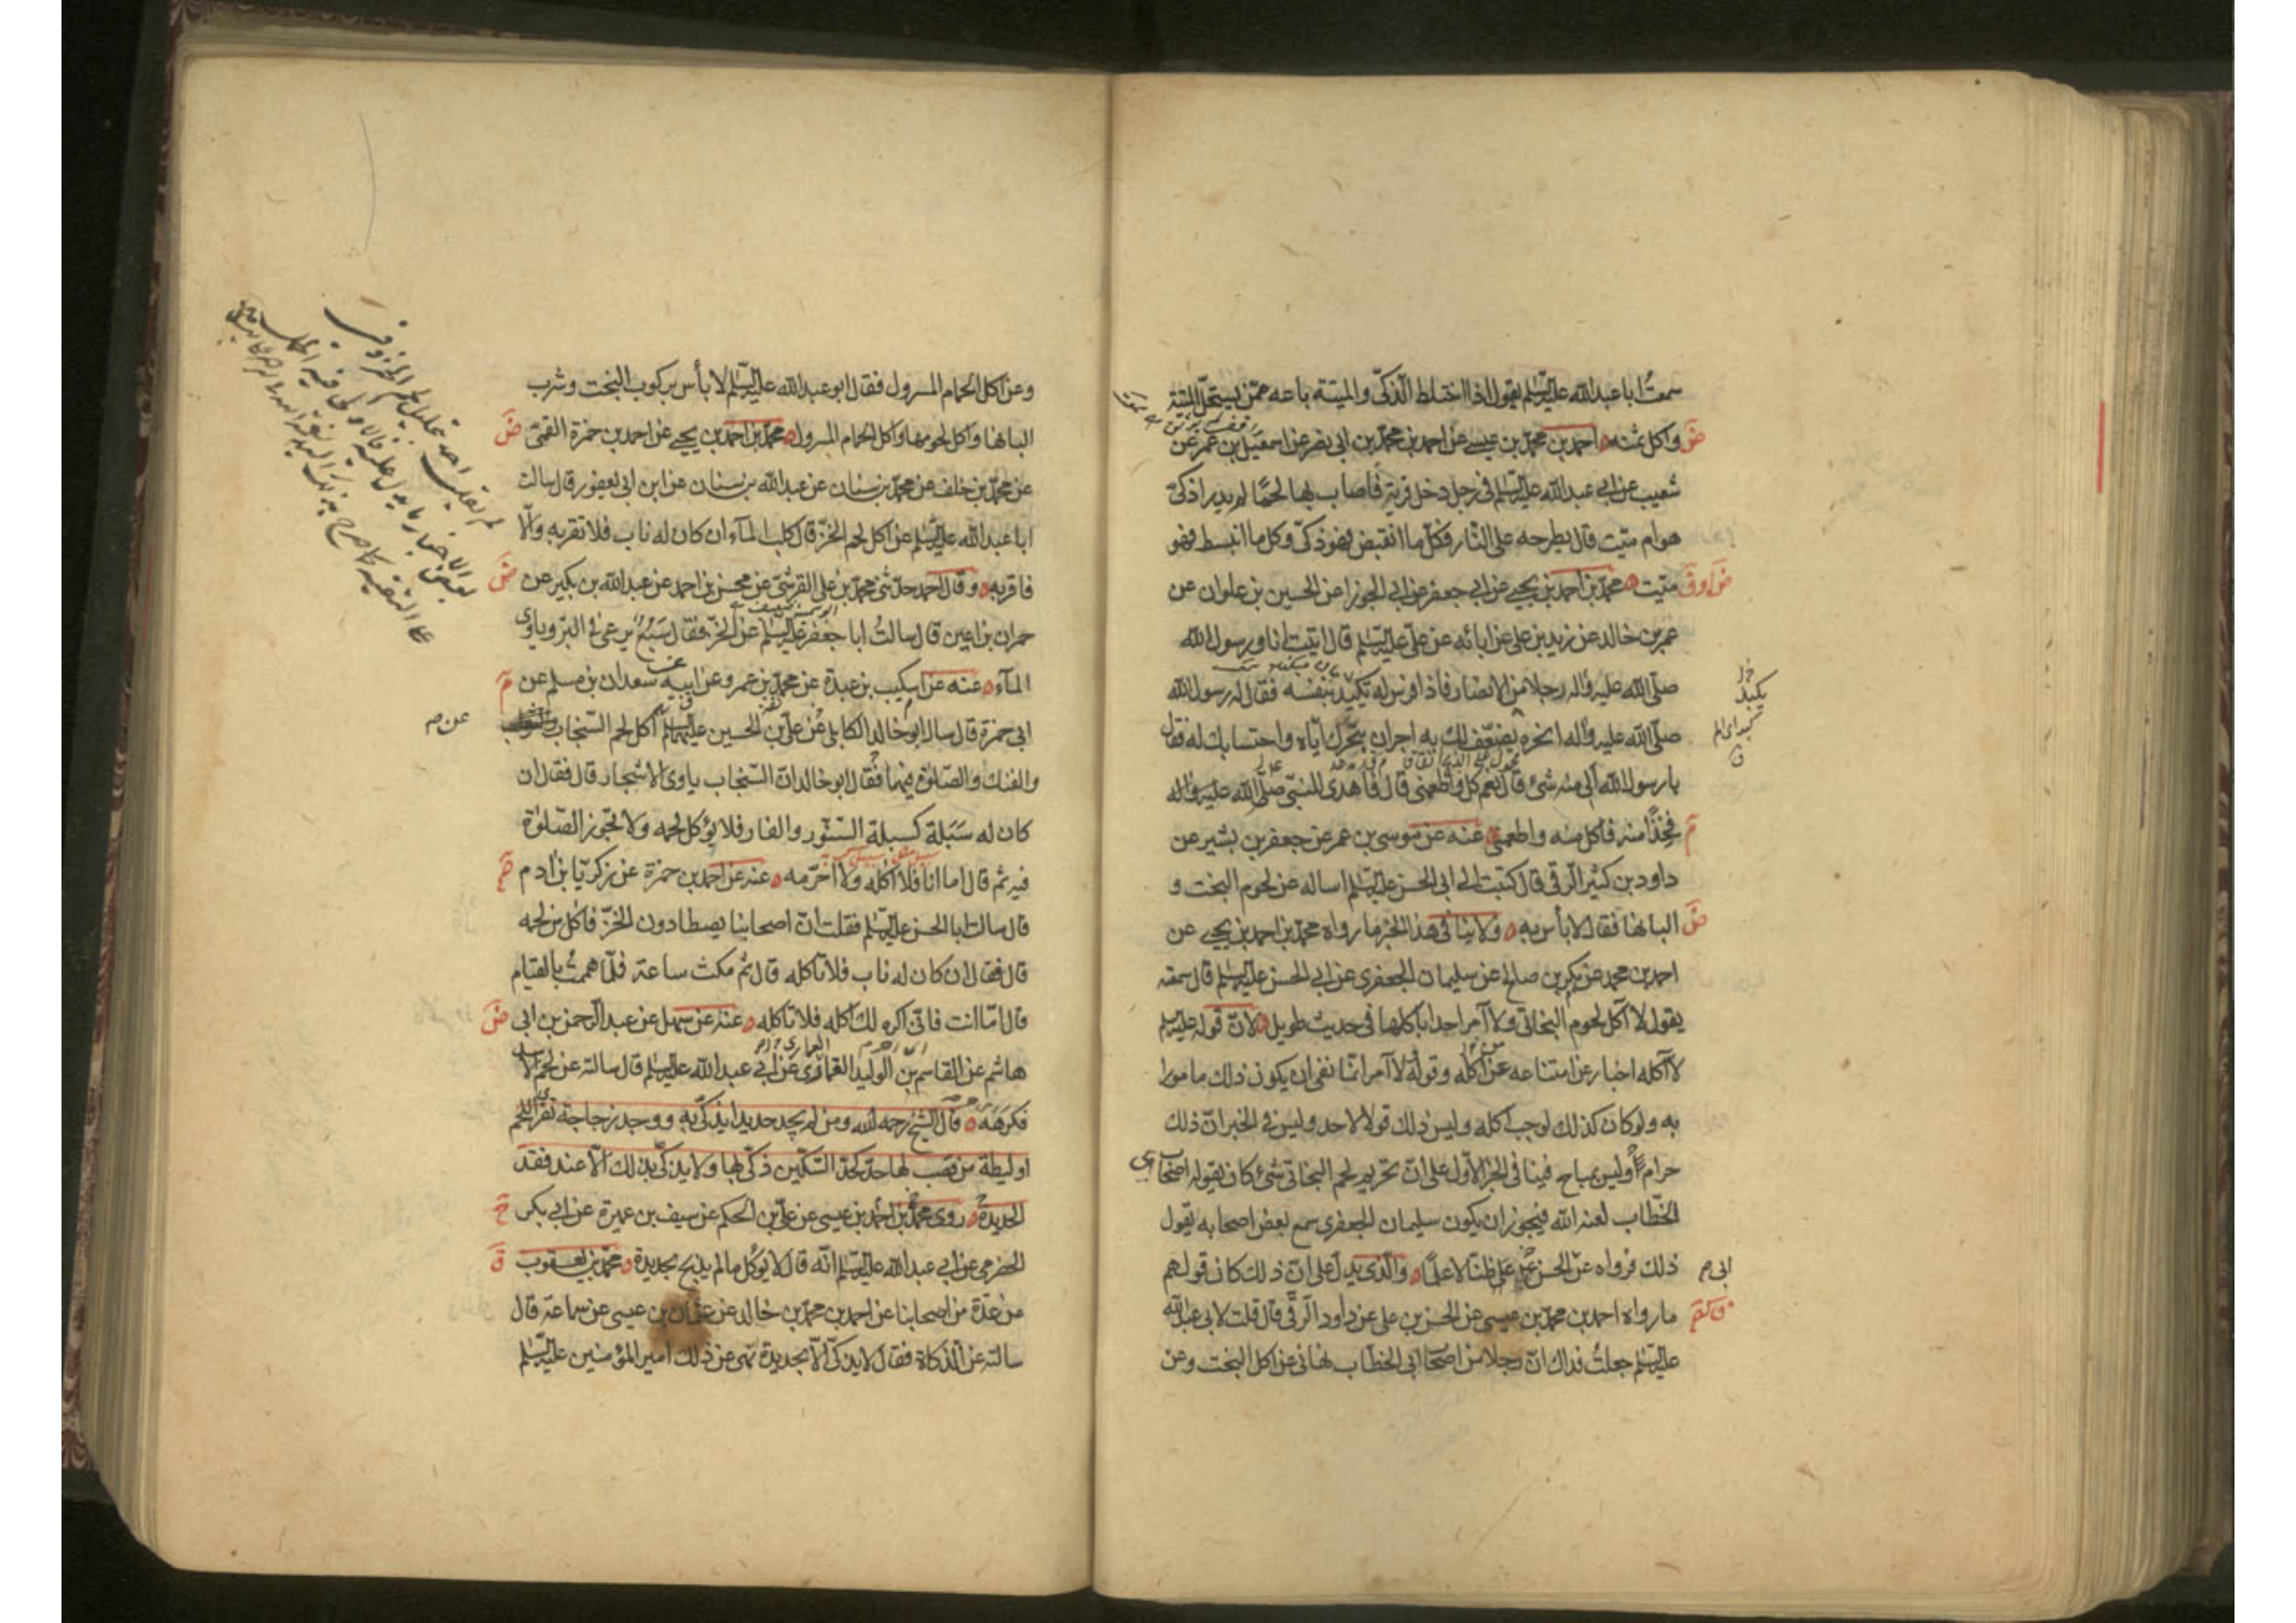 سمعتُ ابا عبدالله عليه السّلم يقول اذا اختلط الذّكىّ والميتة باعه ممّن يستحلّ الميتة
ض
واكل ثمنه احمد بن محمّد بن عيسى عن احمد بن محمّد بن ابى نصر عن اسمعيل بن عمر عن
شعيب عن ابى عبدالله عليه السّلم فى رجل دخل قرية فاصاب بها لحمًا لم يدر اذكىّ
هو ام ميّت قال يطرحه على النّار فكلّ ما انقبض فهو ذكىّ وكل ما انبسط فهو
ميّت محمّد بن احمد بن يحيى عن ابى جعفر عن ابى الجوزا عن الحسين بن علوان عن
عمر بن خالد عن زيد بن على عن ابائه عن علىّ عليه السّلم قال اتيت انا ورسول الله
صلّى الله عليه واله رجلا من الانصار فاذا فرس له يكيد بنفسه فقال له رسول الله
يكيد
صلّى الله عليه واله انحره يضعّف لك به اجران بنحرك ايّاه واحتسابك له فقال
يا رسول الله ألى منه شئ قال نعم كل واطعمنى قال فاهدى للنبّى صلّى الله عليه واله
فخذًا منه فاكل منه واطعمنى عنه عن موسى بن عمر عن جعفر بن بشير عن
داود بن كثير الرّقى قال كتبت الى ابى الحسن عليه السّلم اساله عن لحوم البخت و
ض
البانها فقال لا بأس به ولا ينافى هذا الخبر ما رواه محمّد بن احمد بن يحيى عن
احمد بن محمد عن بكر بن صالح عن سليمان الجعفرى عن ابى الحسن عليه السّلم قال سمعته
يقول لا آكل لحوم البخاتى ولا آمر احدا باكلها فى حديث طويل لانّ قوله عليه السلم
لا آكله اخبار عن امتناعه عن اكله وقوله لا آمر انّما نفى ان يكون ذلك مامورا
به ولو كان كذلك لوجب اكله وليس ذلك قولا لاحد وليس فى الخبر انّ ذلك
حرام أو ليس بمباح فينافى الخبر الاوّل على انّ تحريم لحم البخاتى شئ كان يقوله اصحاب ابى
الخطّاب لعنه الله فيجوز ان يكون سليمان الجعفرى سمع بعض اصحابه يقول
ذلك فرواه عن الحسن على ظنّا لا علمًا والّذى يدلّ على انّ ذلك كان قولهم
ابى
ما رواه احمد بن محمّد بن عيسى عن الحسن بن على عن داود الرّقى قال قلت لابى عبدالله
عليه السّلم جعلتُ فداك انّ رجلا من اصحاب ابى الخطّاب نهانى عن اكل البخت وعن
وعن اكل الحمام المسرول فقال ابو عبدالله عليه السّلم لا بأس بركوب البخت وشرب
البانها واكل لحومها واكل الحمام المسرول محمّد بن احمد بن يحيى عن احمد بن حمزة القمىّ
ض
عن محمّد بن خلف عن محمّد بن سنان عن عبدالله بن سنان عن ابن ابى يعفور قال سالت
ابا عبدالله عليه السّلم عن اكل لحم الخزّ قال كلب المآء ان كان له ناب فلا تقربه والّا
فاقربه وقال احمد حدّثنى محمّد بن على القرشىّ عن محسن بن احمد عن عبدالله بن بكير عن
ض
حمران بن اعين قال سالتُ ابا جعفر عليه السّلم عن الخزّ فقال سبُع يرعى فى البرّ وياوى
المآء عنه عن السكيب بن عبدة عن محمّد بن عمرو عن ابيه سعدان بن مسلم عن
ابى حمزة قال سال ابو خالد الكابلى علىّ بن الحسين عليهما السّلم اكل لحم السّنجاب
عن
والفنك والصّلوة فيهما فقال ابو خالد انّ السّنجاب ياوى الاشجار قال فقال ان
كان له سَبَلة كسبلة السّنّور والفار فلا يؤكل لحمه ولا تجوز الصّلوة
فيه ثم قال اما انا فلا آكله ولا احرّمه عنه عن احمد بن حمزة عن زكريّا بن ادم
قال سالت ابا الحسن عليه السّلم فقلت انّ اصحابنا يصطادون الخزّ فاكل من لحمه
قال فقال ان كان له ناب فلا تاكله قال ثم مكث ساعة فلمّا هممتُ بالقيام
قال امّا انت فانّى اكره لك اكله فلا تاكله عنه عن سهل عن عبد الرّحمن بن ابى
ض
هاشم عن القاسم بن الوليد العمارى عن ابى عبدالله عليه السّلم قال سالته عن لحم الاسد
فكرهه قال الشّيخ رحمه الله ومن لم يجد حديدا يذكّى به ووجد زجاجة تفرى اللحم
او ليطة من قصب لها حدّ كحدّ السّكّين ذكّى بها ولا يذكّى بذلك الّا عند فقد
الحديدة روى محمّد بن احمد بن عيسى عن علىّ بن الحكم عن سيف بن عميرة عن ابى بكر
الحضرمى عن ابى عبدالله عليه السّلم انّه قال لا يؤكل ما لم يذبح بحديدة محمّد بن يعقوب
ق
من عدّة من اصحابنا عن احمد بن محمّد بن خالد عن عثمان بن عيسى عن سماعة قال
سالته عن الذكاة فقال لا يذكّى الّا بحديدة نهى عن ذلك امير المؤمنين عليه السّلم